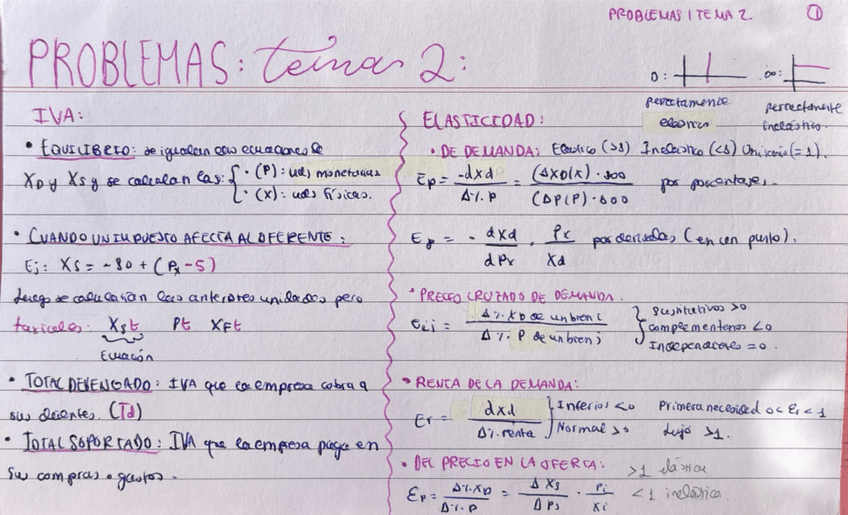 PROBLEMAS | TEMA 2. ①
PROBLEMAS: temas 2:
0: ∞:
perfectamente
elástica
perfectamente
inelástica.
IVA:
• EQUILIBRIO: se igualan las ecuaciones de
XD y XS y se calculan las: { • (P): uds monetarias
• (X): uds físicas.
• CUANDO UN IMPUESTO AFECTA AL OFERENTE:
Ej: XS = -80 + (Px - 5)
Luego se calcularían las anteriores unidades pero
XSt Pt XFt
Ecuación
• TOTAL DEVENGADO: IVA que la empresa cobra a
sus clientes. (Td)
• TOTAL SOPORTADO: IVA que la empresa paga en
sus compras o gastos.
ELASTICIDAD:
• DE DEMANDA: Elástico (>1) Inelástico (<1) Unitario (=1).
Ep = -dXd / Δ%P = (ΔXD/X) · 100 / (ΔP/P) · 100 por porcentajes.
Ep = - dXd / dPx · Px / Xd por derivadas (en un punto).
• PRECIO CRUZADO DE DEMANDA.
Eij = Δ%XD de un bien i / Δ%P de un bien j } Sustitutivos >0
complementarios <0
Independientes = 0.
• RENTA DE LA DEMANDA:
Er = dXd / Δ%renta } Inferios <0 Primera necesidad 0 < Er < 1
Normal >0 Lujo >1.
• DEL PRECIO EN LA OFERTA: >1 elástica
Ep = Δ%XD / Δ%P = ΔXs / ΔPs · Pi / Xi <1 inelástica